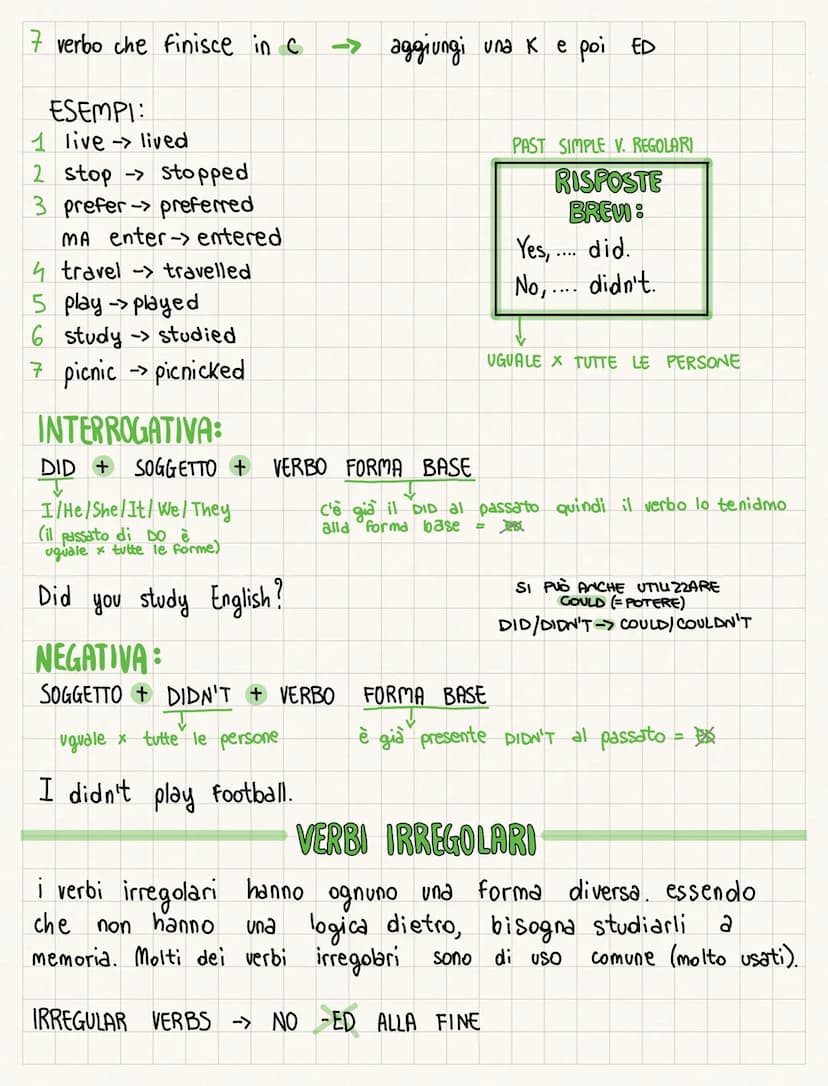 7 verbo che finisce in C → aggiungi una K e poi ED
ESEMPI:
1 live -> lived
2 stop -> stopped
3 prefer -> preferred
MA enter -> entered
4 travel -> travelled
5 play -> played
6 study -> studied
7 picnic -> picnicked
PAST SIMPLE V. REGOLARI
RISPOSTE
BREVI:
Yes, .... did.
No, .... didn't.
UGUALE X TUTTE LE PERSONE
INTERROGATIVA:
DID + SOGGETTO + VERBO FORMA BASE
I/He/She/It/We/They
(il passato di DO è
uguale x tutte le forme)
c'è già il DID al passato quindi il verbo lo teniamo
alla forma base =
Did you study English?
SI PUÒ ANCHE UTILIZZARE
COULD (= POTERE)
DID/DIDN'T -> COULD/COULDN'T
NEGATIVA:
SOGGETTO + DIDN'T + VERBO FORMA BASE
uguale x tutte le persone
è già presente DIDN'T al passato =
I didn't play football.
VERBI IRREGOLARI
i verbi irregolari hanno ognuno una forma diversa. essendo
che non hanno una logica dietro, bisogna studiarli a
memoria. Molti dei verbi irregolari sono di uso comune (molto usati).
IRREGULAR VERBS -> NO -ED ALLA FINE